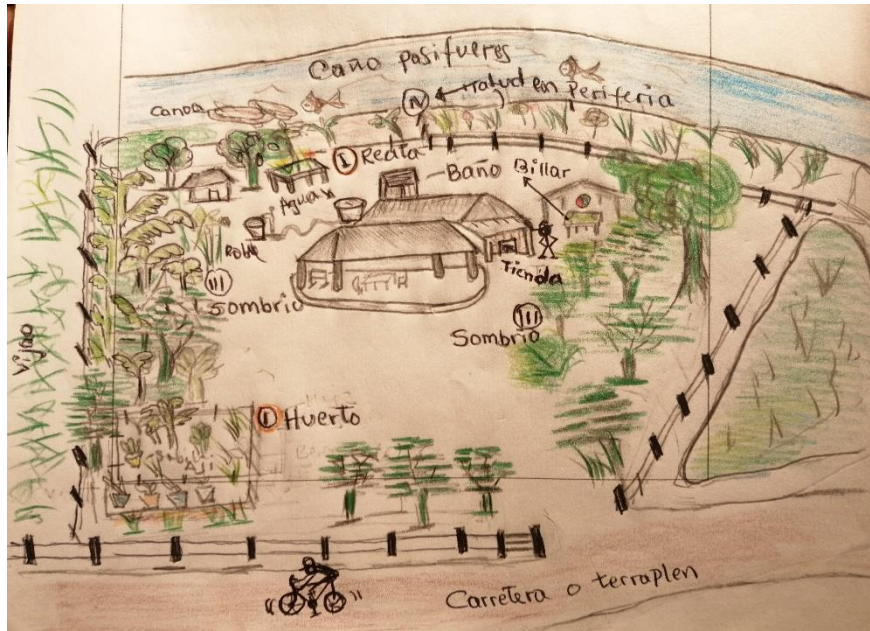 Caño pasifueres
Canoa
IV talud en periferia
I Redta
Baño
Billar
Aguax
Roble
III
Sombrio
Tienda
III
Sombrio
Vijao
I Huerto
Carretera o terraplen